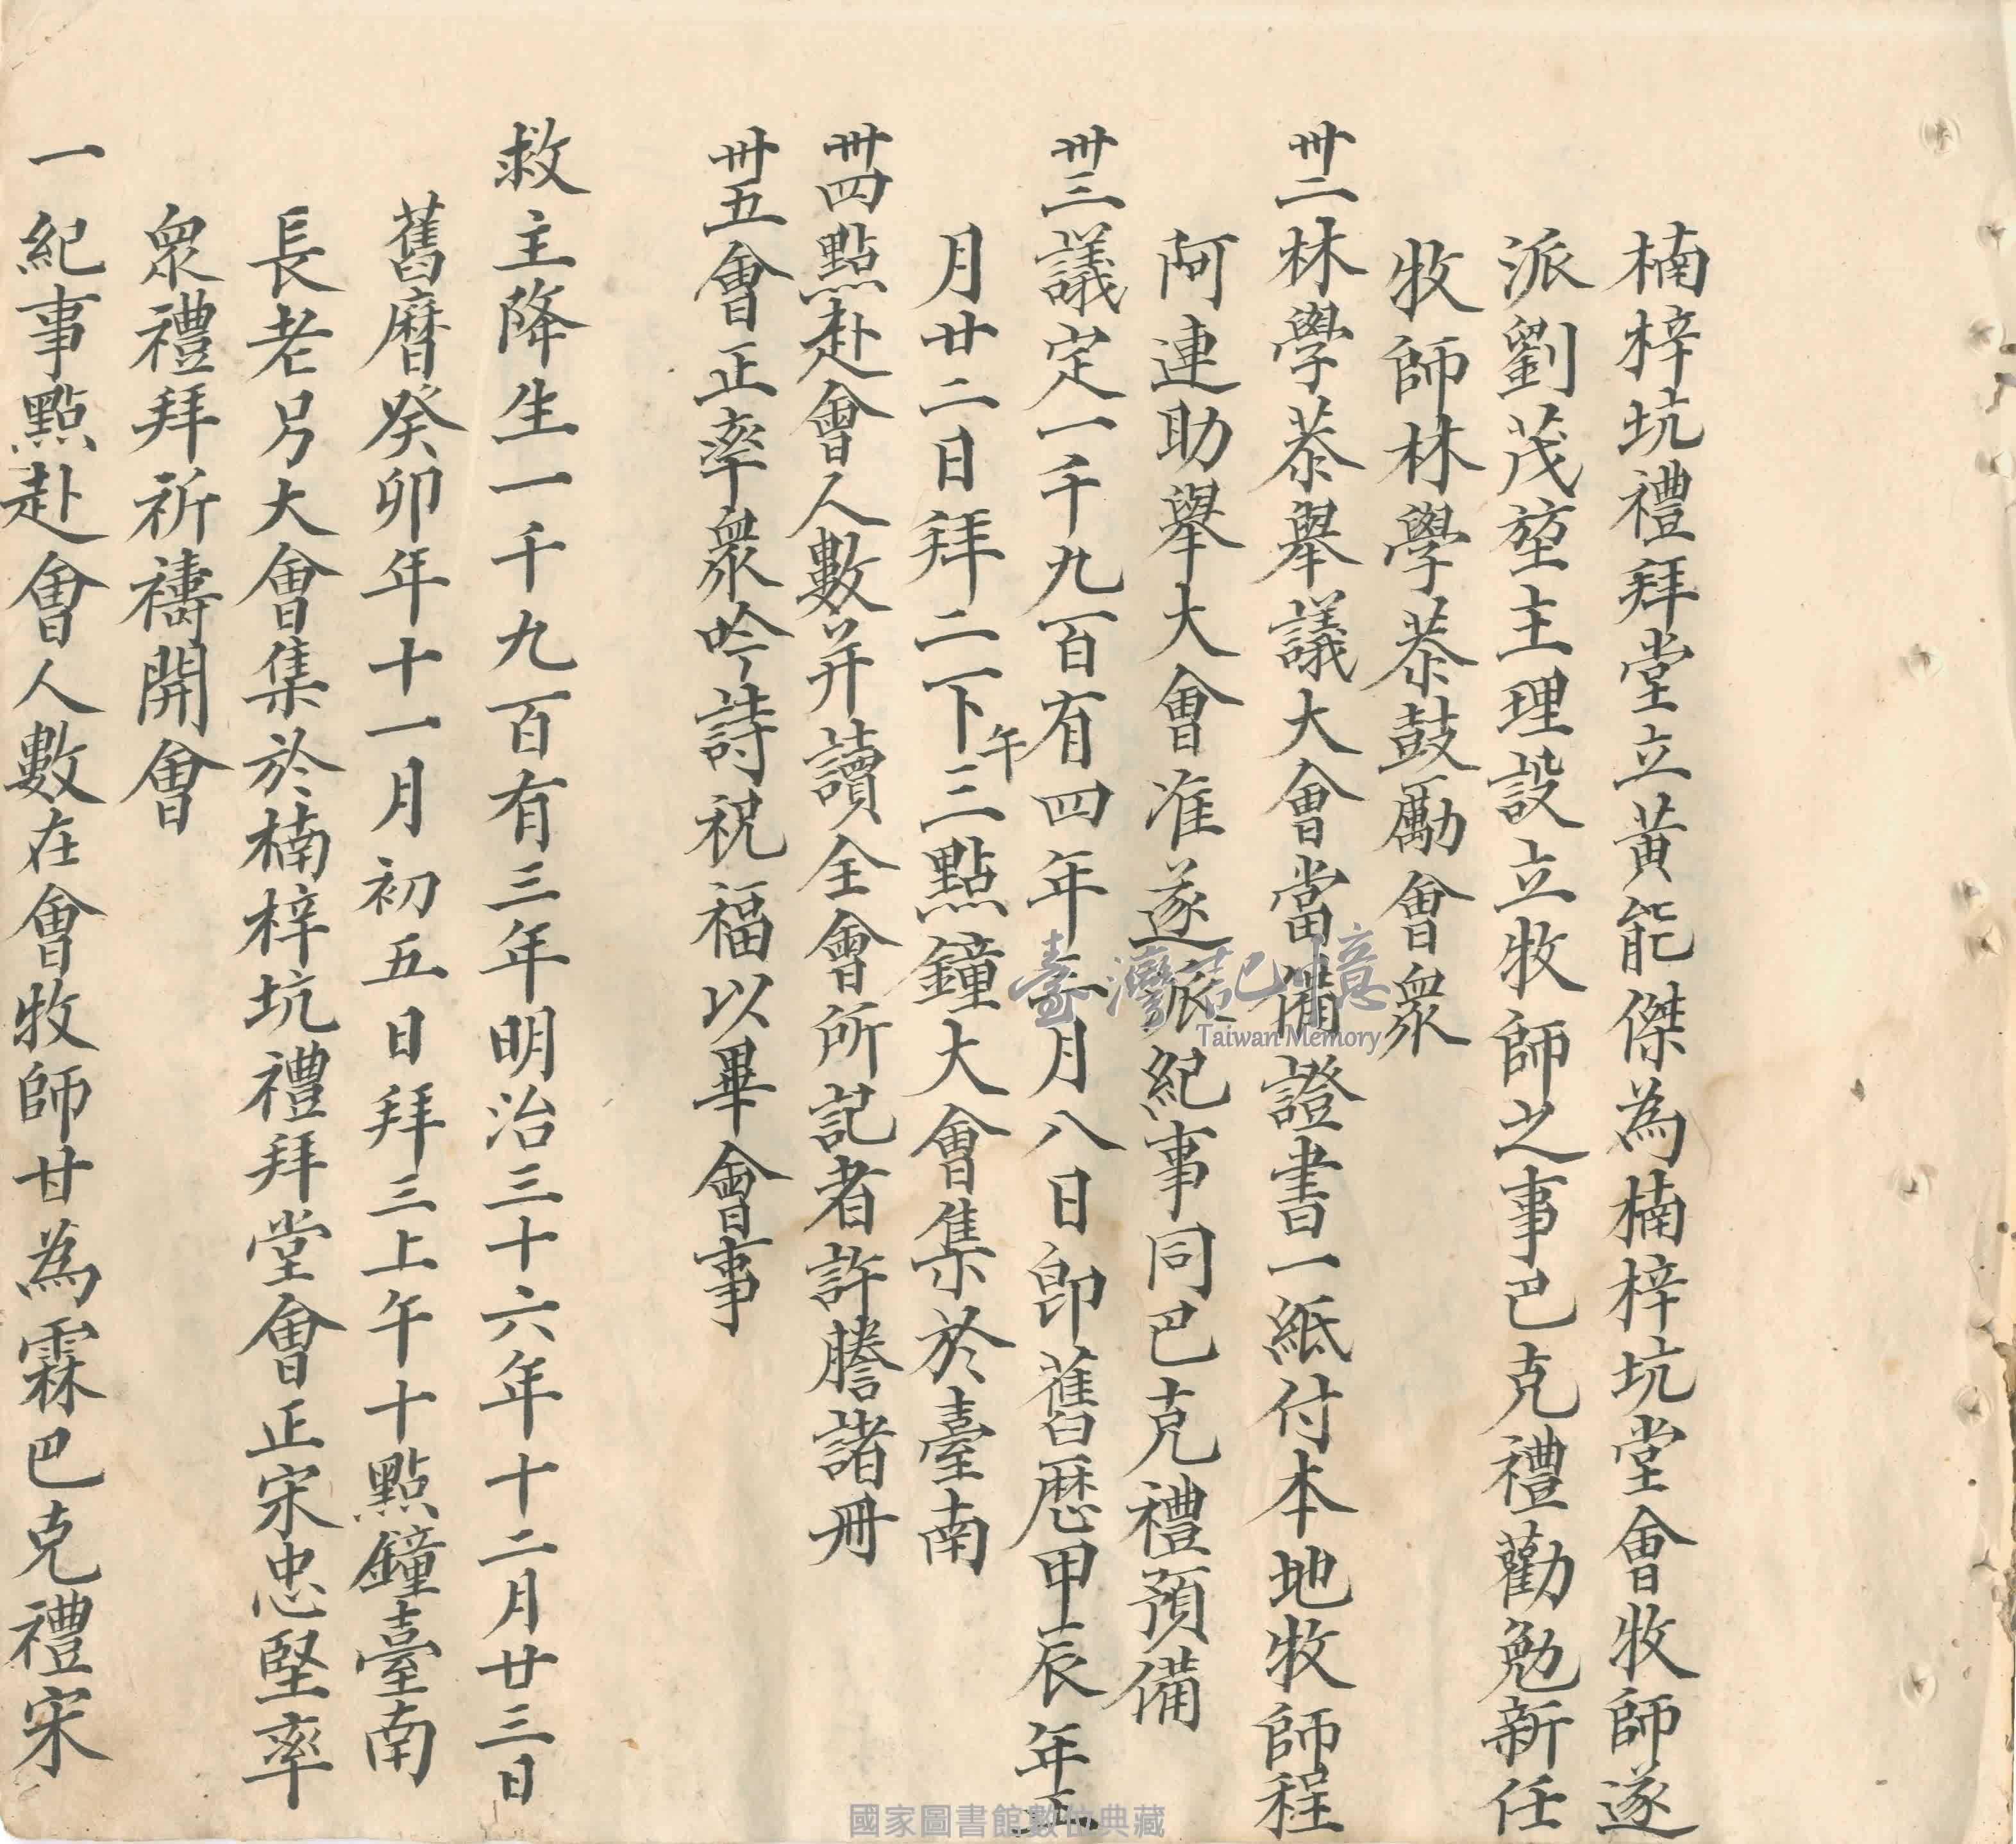 楠梓坑禮拜堂立黃能傑為楠梓坑堂會牧師遂
派劉茂堃主理設立牧師之事巴克禮勸勉新任
牧師林學恭鼓勵會眾
卅二林學恭舉議大會當備證書一紙付本地牧師程
阿連助舉大會准遂派紀事同巴克禮預備
卅三議定一千九百有四年三月八日即舊歷甲辰年正
月廿二日拜二下午三點鐘大會集於臺南
卅四點赴會人數并讀全會所記者許謄諸冊
卅五會正率眾吟詩祝福以畢會事
救主降生一千九百有三年明治三十六年十二月廿三日
舊曆癸卯年十一月初五日拜三上午十點鐘臺南
長老另大會集於楠梓坑禮拜堂會正宋忠堅率
眾禮拜祈禱開會
一紀事點赴會人數在會牧師甘為霖巴克禮宋
臺灣記憶
Taiwan Memory
國家圖書館數位典藏